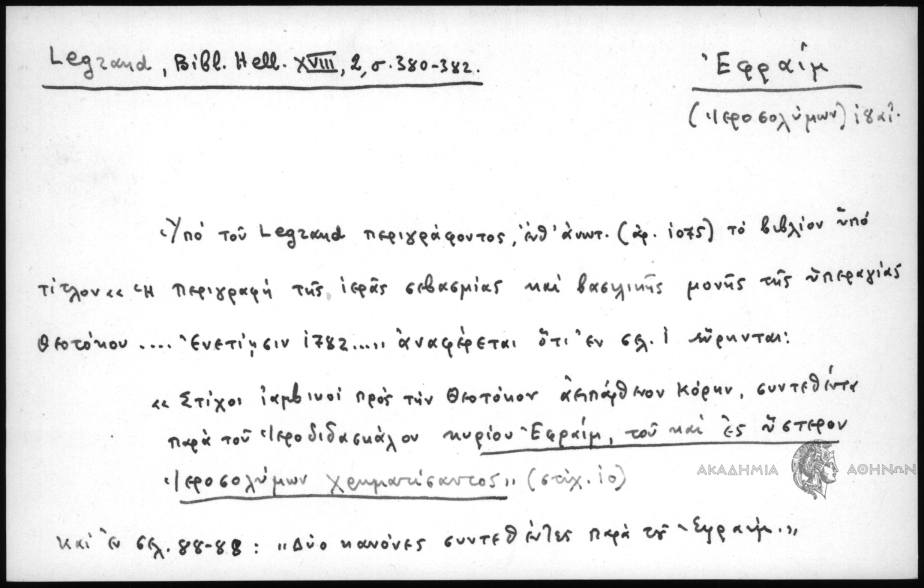 Legrand, Bibl. Hell. XVIII, 2, σ. 380-382.
Ἐφραίμ
(Ἱεροσολύμων)
Ὑπό τοῦ Legrand περιγράφοντος, ἔνθ' ἀνωτ. (ἀρ. 1075) τό βιβλίον ὑπό
τίτλον «Ἡ περιγραφή τῆς ἱερᾶς σεβασμίας καί βασιλικῆς μονῆς τῆς ὑπεραγίας
Θεοτόκου .... Ἐνετίῃσιν 1782...» ἀναφέρεται ὅτι ἐν σελ. 1 εὕρηνται:
«Στίχοι ἰαμβικοί πρός τήν Θεοτόκον ἀειπάρθενον Κόρην, συντεθέντες
παρά τοῦ Ἱεροδιδασκάλου κυρίου Ἐφραίμ, τοῦ καί ἐς ὕστερον
Ἱεροσολύμων χρηματίσαντος» (στίχ. 10)
ΑΚΑΔΗΜΙΑ ΑΘΗΝΩΝ
καί ἐν σελ. 88-88 : "Δύο κανόνες συντεθέντες παρά τοῦ Ἐφραίμ."